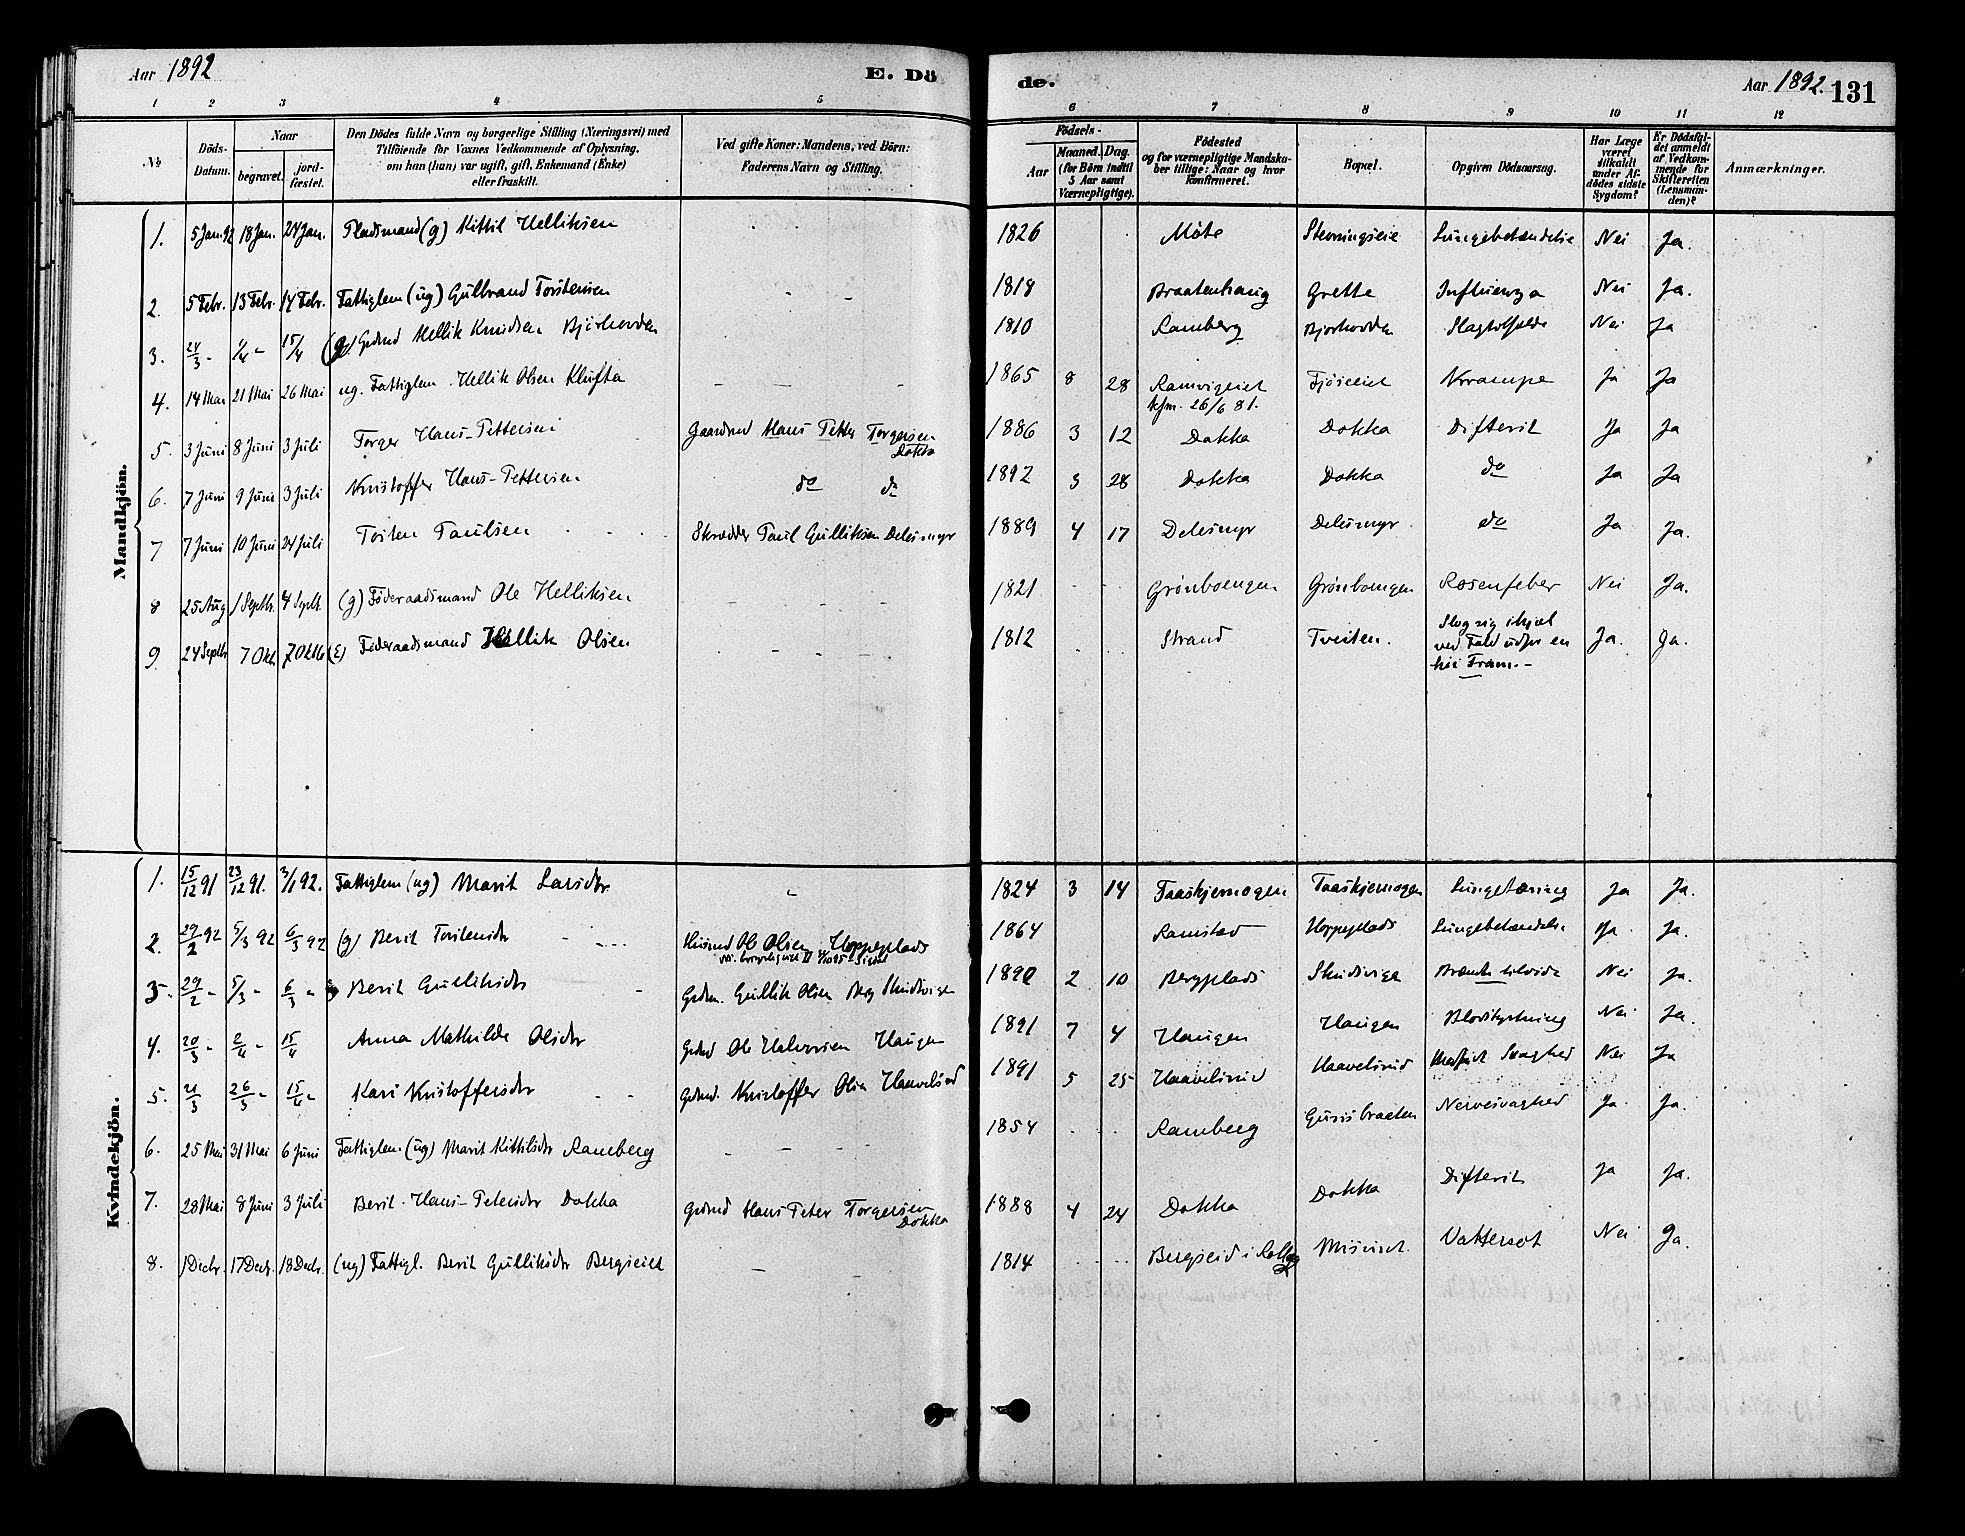 Aar 1892
E. Dö
de.
Aar 1892. 131
1 2 3 4 5 6 7 8 9 10 11 12
№
Döds-Datum.
Naar
begravet.
jord-fæstet.
Den Dödes fulde Navn og borgerlige Stilling (Næringsvei) med
Tilföiende for Voxnes Vedkommende af Oplysning,
om han (hun) var ugift, gift, Enkemand (Enke)
eller fraskilt.
Ved gifte Koner: Mandens, ved Börn:
Faderens Navn og Stilling.
Födsels-
Aar
Maaned. Dag.
(for Börn indtil
5 Aar samt
Værnepligtige).
Födested
og for værnepligtige Mandska-
ber tillige: Naar og hvor
Konfirmeret.
Bopæl.
Opgiven Dödsaarsag.
Har Læge
været
tilkaldt
under Af-
dödes sidste
Sygdom?
Er Dödsfal-
det anmeldt
af Vedkom-
mende for
Skifteretten
(Lensman-
den)?
Anmærkninger.
Mandkjön.
1. 5 Jan. 92 18 Jan. 24 Jan. Pladsmand (g) Kittil Helliksen 1826 Möte Lungebetændelse Nei Ja.
2. 5 Febr. 13 Febr. 14 Febr. Fattiglem (ug) Gulbrand Torstensen - - 1818 Braatenhaug Grette Influenza Nei Ja.
3. 24/3 - 15/4 (g) Gdmd Hellik Knudsen Björhovden 1810 Ramberg Bjorhovden Nei Ja
4. 14 Mai 21 Mai 26 Mai ug. Fattiglem. Hellik Olsen Klufta - - - 1865 8 28 Krampe Ja Ja
kfm. 26/6 81.
5. 3 Juni 8 Juni 3 Juli Torger Hans-Pettersen Gaardmd Hans Petter Torgersen 1886 3 12 Dokka Dokka Difterit Ja Ja
Dokka
6. 7 Juni 9 Juni 3 Juli Kristoffer Hans-Pettersen do do 1892 3 28 Dokka Dokka do Ja Ja
7 7 Juni 10 Juni 24 Juli Tosten Paulsen Skrædder Paul Gulliksen Delesmyr 1889 4 17 Delesmyr Delesmyr do Ja Ja.
8 25 Aug 1 Septb. 4 Septb. (g) Föderaadsmand Ole Helliksen - - - 1821 Grönboengen Grönboengen Rosenfeber Nei Ja.
9. 24 Septbr 7 Okt. 7 Oktb (E) Föderaadsmand Hellik Olsen - - - 1812 Strand Tveiten. Slog sig ihjel Ja. Ja.
ved Fald udfor en
höi Tram. -
Kvindekjön.
1. 15/12 91 23/12 91. 3/1 92. Fattiglem (ug) Marit Larsdtr. - 1824 3 14 Taaskjernogen Taaskjernogen Lungetæring Ja Ja.
2. 29/2 92 5/3 92 6/3 92 (g) Berit Torstensdtr Husmd Ole Olsen Hoppeplads 1864 Ramstad Hoppeplads Lungebetændelse Ja Ja.
3. 29/2 - 5/3 - 6/3 - Berit Gulliksdtr - Gdm. Gullik Olsen Berg Skudsvigen 1890 2 10 Bergplads Brændt Nei Ja.
4. 20/3 - 2/4 - 15/4 Anna Mathilde Olsdtr Gdmd Ole Halvorsen Haugen 1891 7 4 Haugen Haugen Nei Ja.
5. 21/3 26/3 - 15/4 - Kari Kristoffersdtr - - Gdmd. Kristoffer Olsen Haavelsrud 1891 5 25 Haavelsrud Haavelsrud Medfödt Svaghed Nei Ja
6. 25 Mai 31 Mai 6 Juni Fattiglem. (ug) Marit Kittilsdtr Ramberg - - - 1854 Ramberg Nervesvaghed Ja. Ja.
7. 28 Mai 8 Juni 3 Juli Berit Hans-Petersdtr Dokka Gdmd Hans Peter Torgersen 1888 4 24 Dokka Dokka Difterit Ja Ja.
Dokka
8. 1 Decbr. 17 Decb. 18 Decbr. (ug) Fattigl. Berit Gulliksdtr Bergseiet - - 1814 Vattersot Nei Ja.